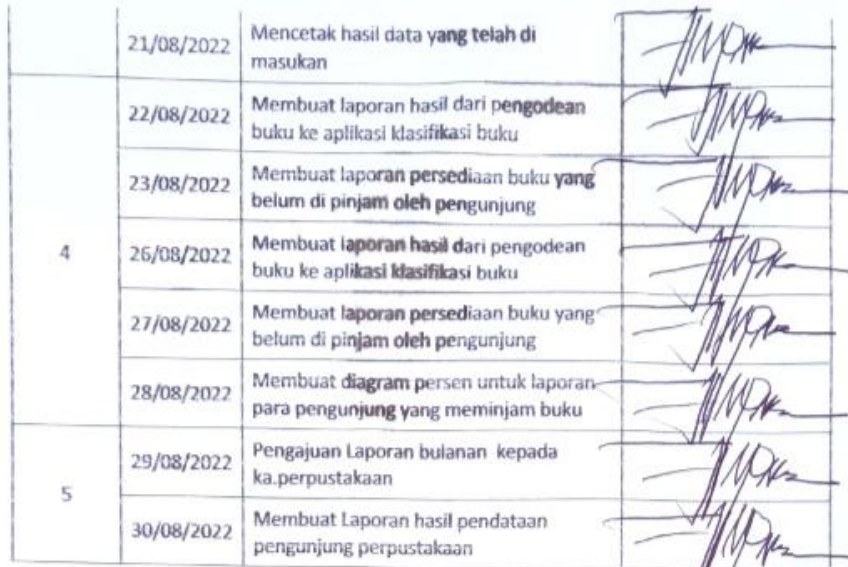 21/08/2022 Mencetak hasil data yang telah di
masukan
22/08/2022 Membuat laporan hasil dari pengodean
buku ke aplikasi klasifikasi buku
23/08/2022 Membuat laporan persediaan buku yang
belum di pinjam oleh pengunjung
4 26/08/2022 Membuat laporan hasil dari pengodean
buku ke aplikasi klasifikasi buku
27/08/2022 Membuat laporan persediaan buku yang
belum di pinjam oleh pengunjung
28/08/2022 Membuat diagram persen untuk laporan
para pengunjung yang meminjam buku
5 29/08/2022 Pengajuan Laporan bulanan kepada
ka.perpustakaan
30/08/2022 Membuat Laporan hasil pendataan
pengunjung perpustakaan